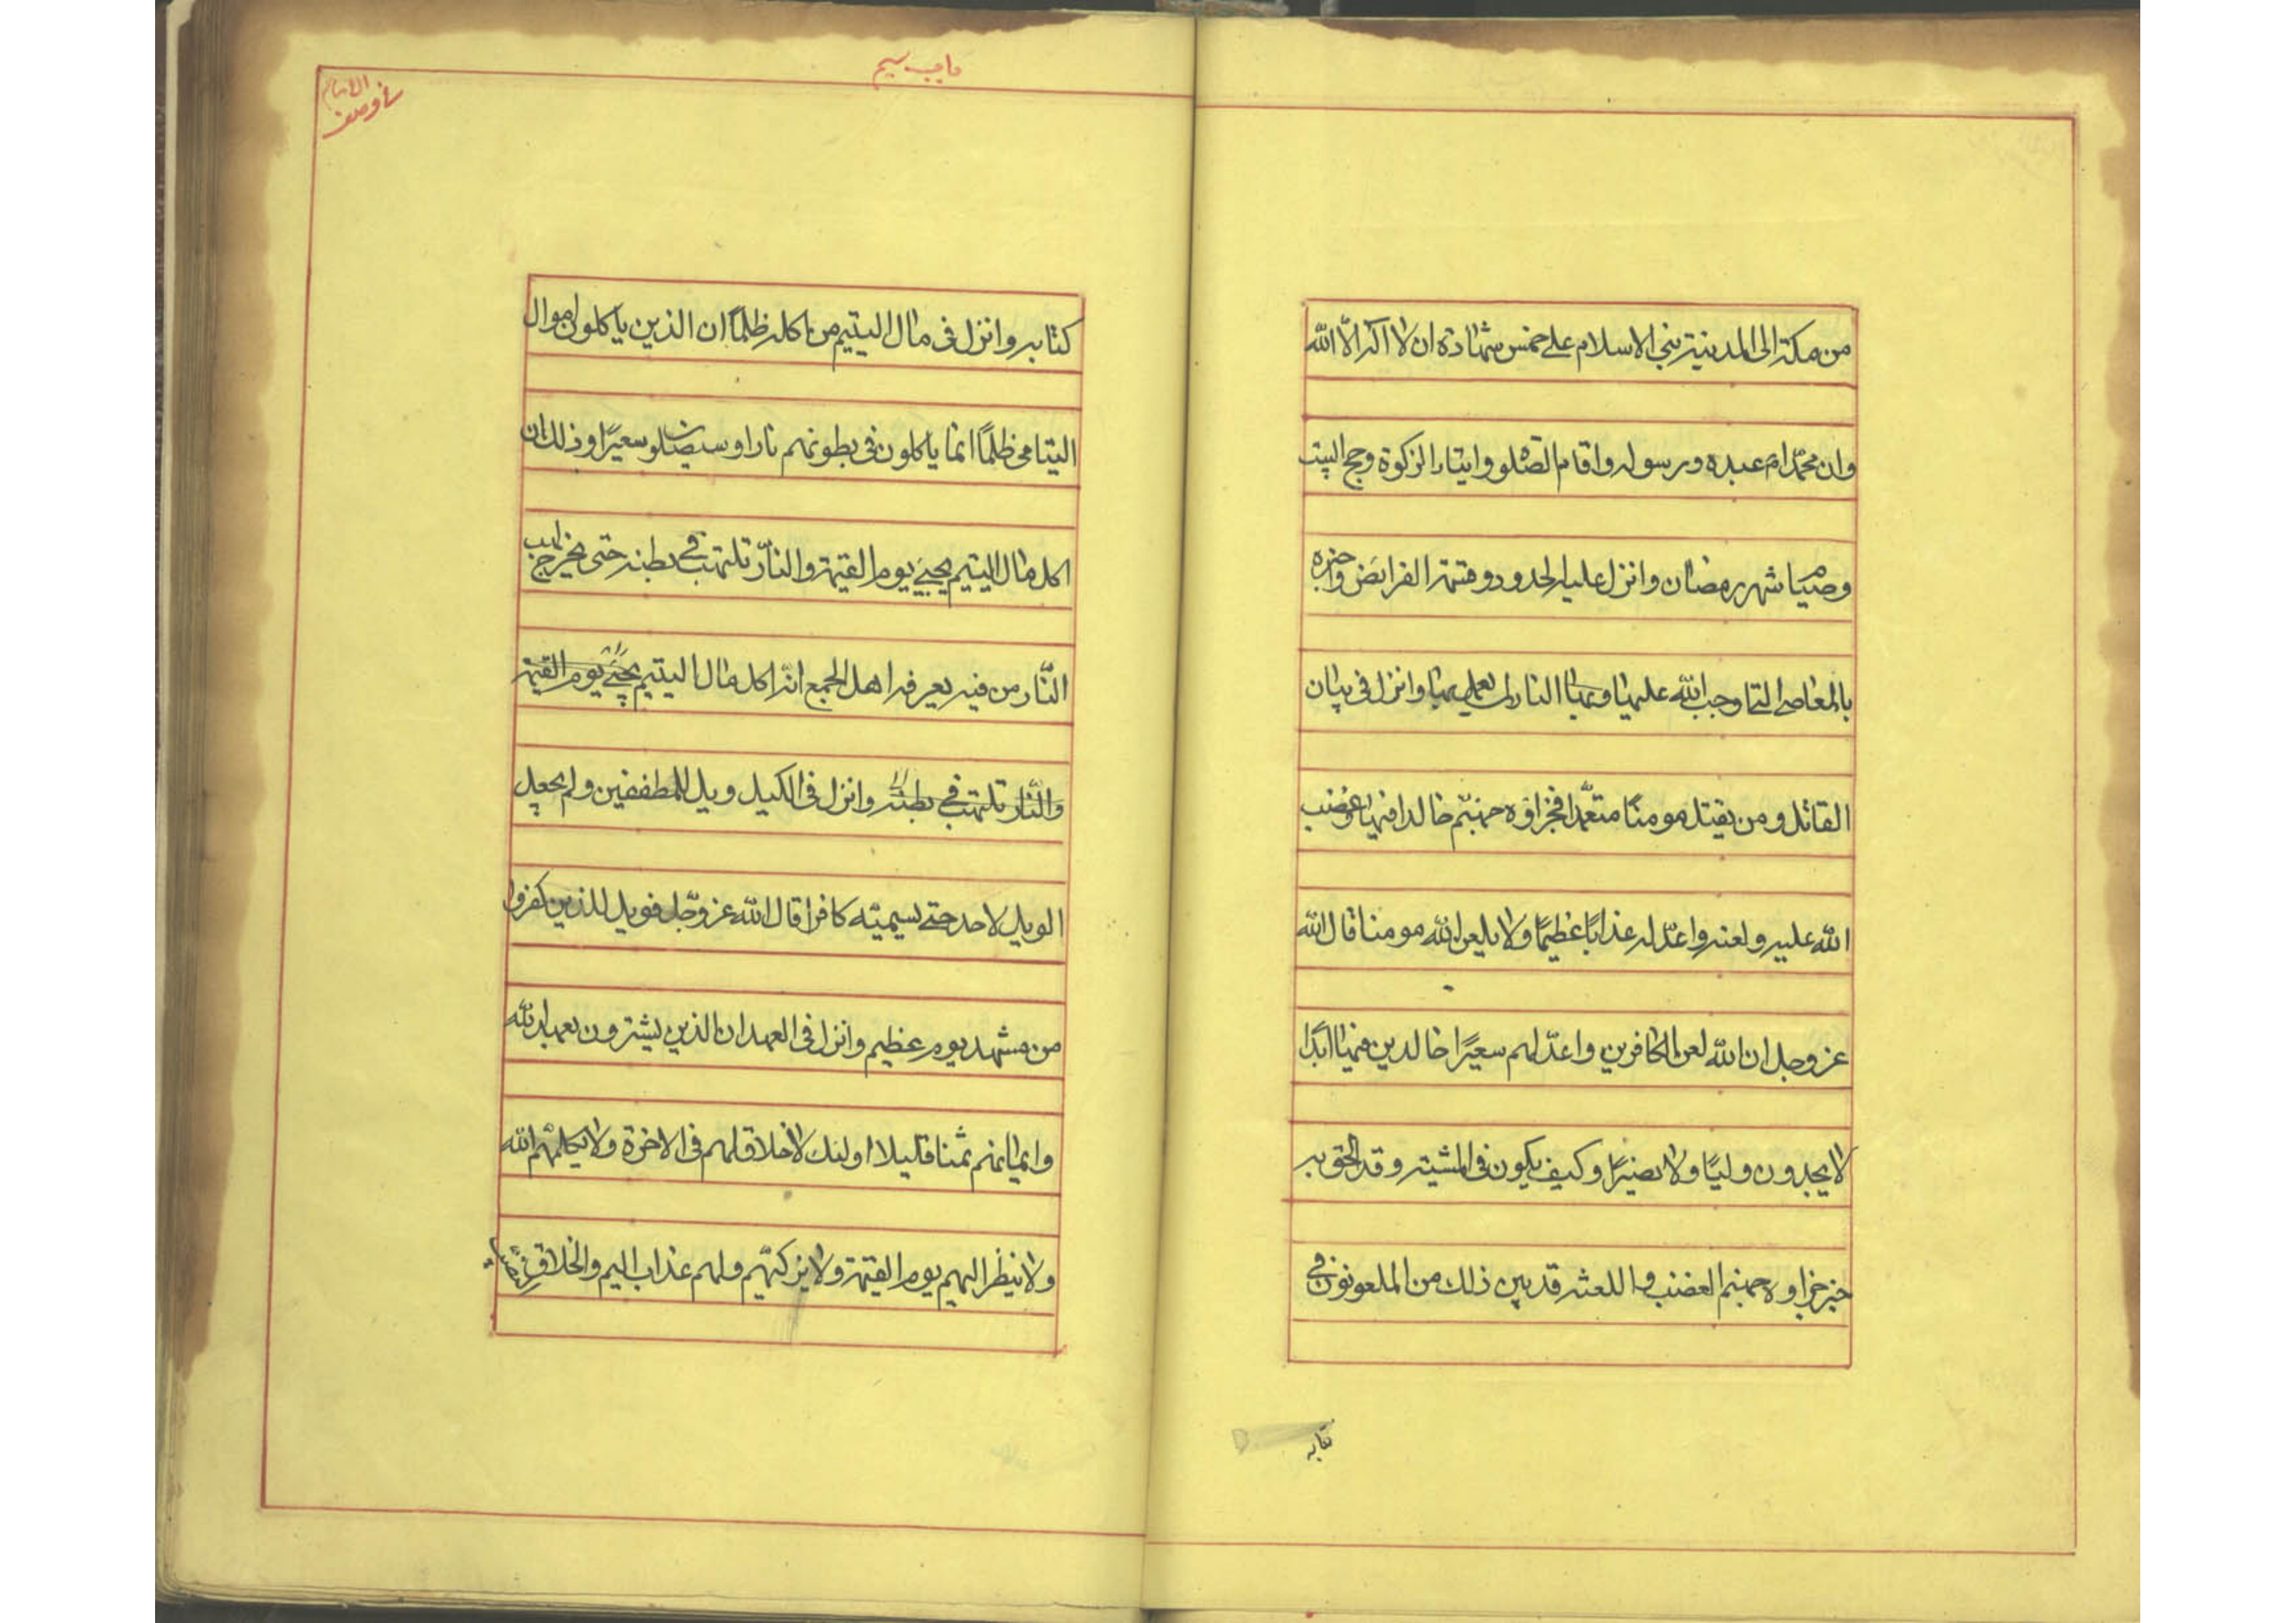 من مكة الى المدينة بنى الاسلام على خمس شهادة ان لا اله الا الله
وان محمدا م عبده ورسوله واقام الصلوة وايتاء الزكوة وحج البيت
وصيام شهر رمضان وانزل عليه الحدود وقسمة الفرايض واخبره
بالمعاصى التى اوجب الله عليها وبها النار لمن عمل بها وانزل فى بيان
القاتل ومن يقتل مومنًا متعمّدا فجزاؤه جهنّم خالدا فيها وغضب
الله عليه ولعنه واعدّ له عذابًا عظيمًا ولا يلعن الله مومنا قال الله
عز وجل ان الله لعن الكافرين واعدّ لهم سعيرًا خالدين فيها ابدًا
لا يجدون وليًا ولا نصيرًا وكيف يكون فى المشية وقد الحق به
حين جزاوه جهنم الغضب واللعنة قد بين ذلك من الملعونون فى
كتابه
واجب سيم
الامام
كتابه وانزل فى مال اليتيم من اكله ظلمًا ان الذين ياكلون اموال
اليتامى ظلمًا انما ياكلون فى بطونهم نارا وسيصلون سعيرًا وذلك ان
اكل مال اليتيم يجيئ يوم القيمة والنّار تلتهب فى بطنه حتى يخرج لهب
النّار من فيه يعرفه اهل الجمع انّه اكل مال اليتيم يجيئ يوم القيمة
والنّار تلتهب فى بطنه وانزل فى الكيل ويل للمطففين ولم يجعل
الويل لاحد حتى يسميته كافرا قال الله عز وجّل فويل للذين كفروا
من مشهد يوم عظيم وانزل فى العهد ان الذين يشترون بعهد الله
وايمانهم ثمنا قليلا اولئك لا خلاق لهم فى الاخرة ولا يكلمهم الله
ولا ينظر اليهم يوم القيمة ولا يزكّيهم ولهم عذاب اليم والخلاق